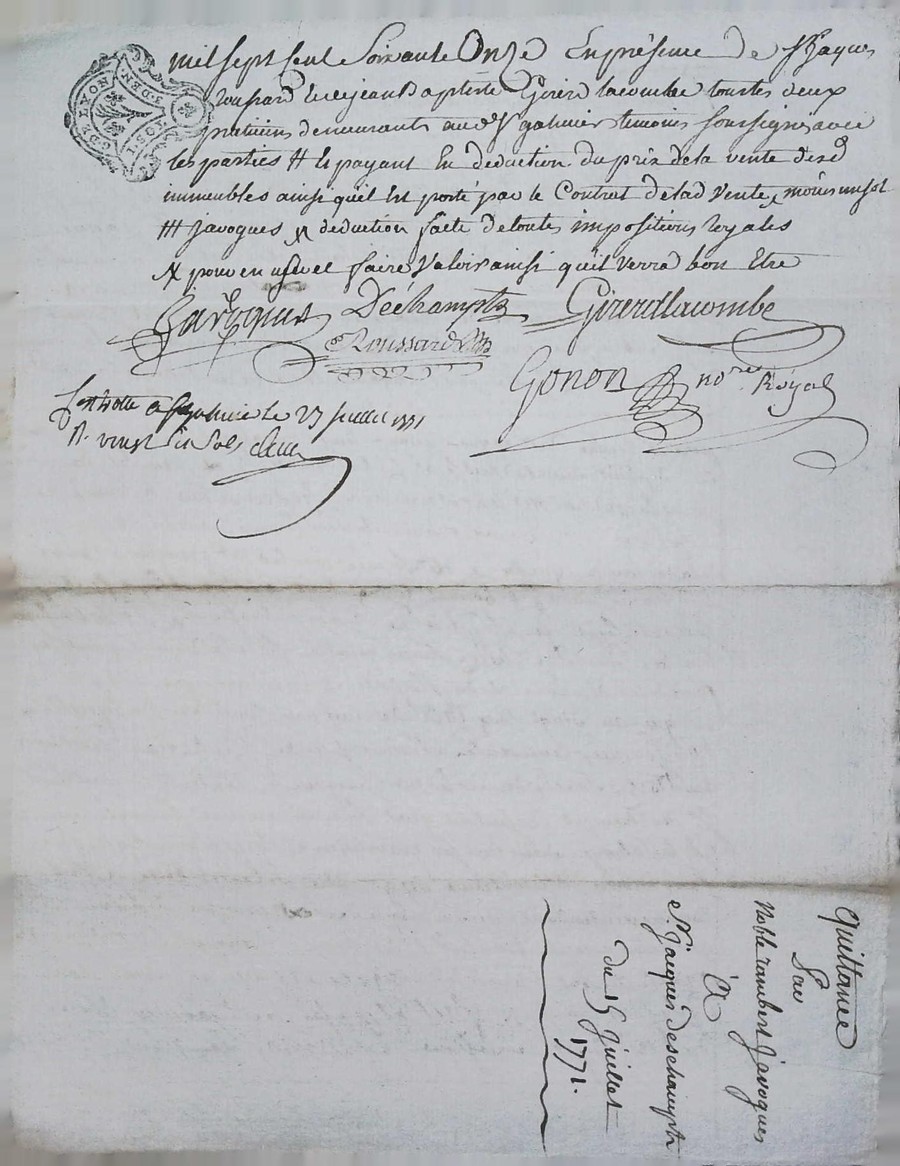 G. DE LYON
3. DEN.
1S. 6D.
mil sept Cent Soixante Onze En présence de Sr Jaques
Roussard Et de jean Baptiste Girerd lacombe tous les deux
praticiens demeurants aud St galmier temoins soussignés avec
les parties # Et payant En deduction du prix de la vente desd
immeubles ainsi qu'il Est porté par le Contrat de lad Vente moins un sol
### javogues deduction faite de toutes impositions royales
pour en user et faire Valoir ainsi qu'il verra bon Etre
Javogues Déchampts Girerdlacombe
Roussard
Gonon nore Royal
Controllé a St galmier le 23 juillet 1771
R. vingt six sols
Quittance
Par
Noble rambert javogues
à
Sr. jacques deschampts
du 15 juillet
1771.